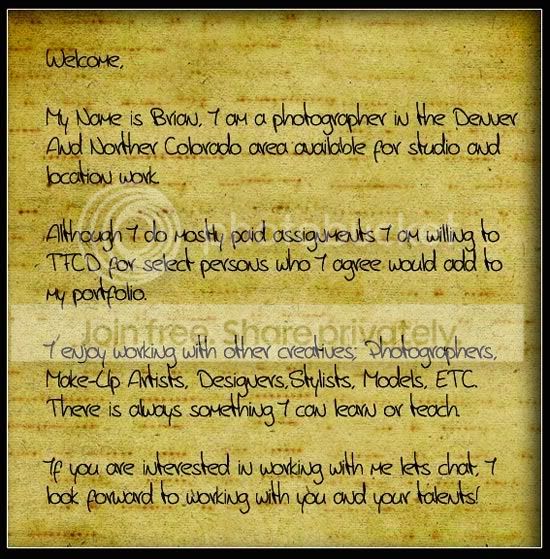 Welcome,
My Name is Brian, I am a photographer in the Denver
And Norther Colorado area available for studio and
location work.
photobucket
Although I do mostly paid assignments I am willing to
TFCD for select persons who I agree would add to
my portfolio.
Join free. Share privately
I enjoy working with other creatives; Photographers,
Make-Up Artists, Designers,Stylists, Models, ETC.
There is always something I can learn or teach.
If you are interested in working with me lets chat, I
look forward to working with you and your talents!